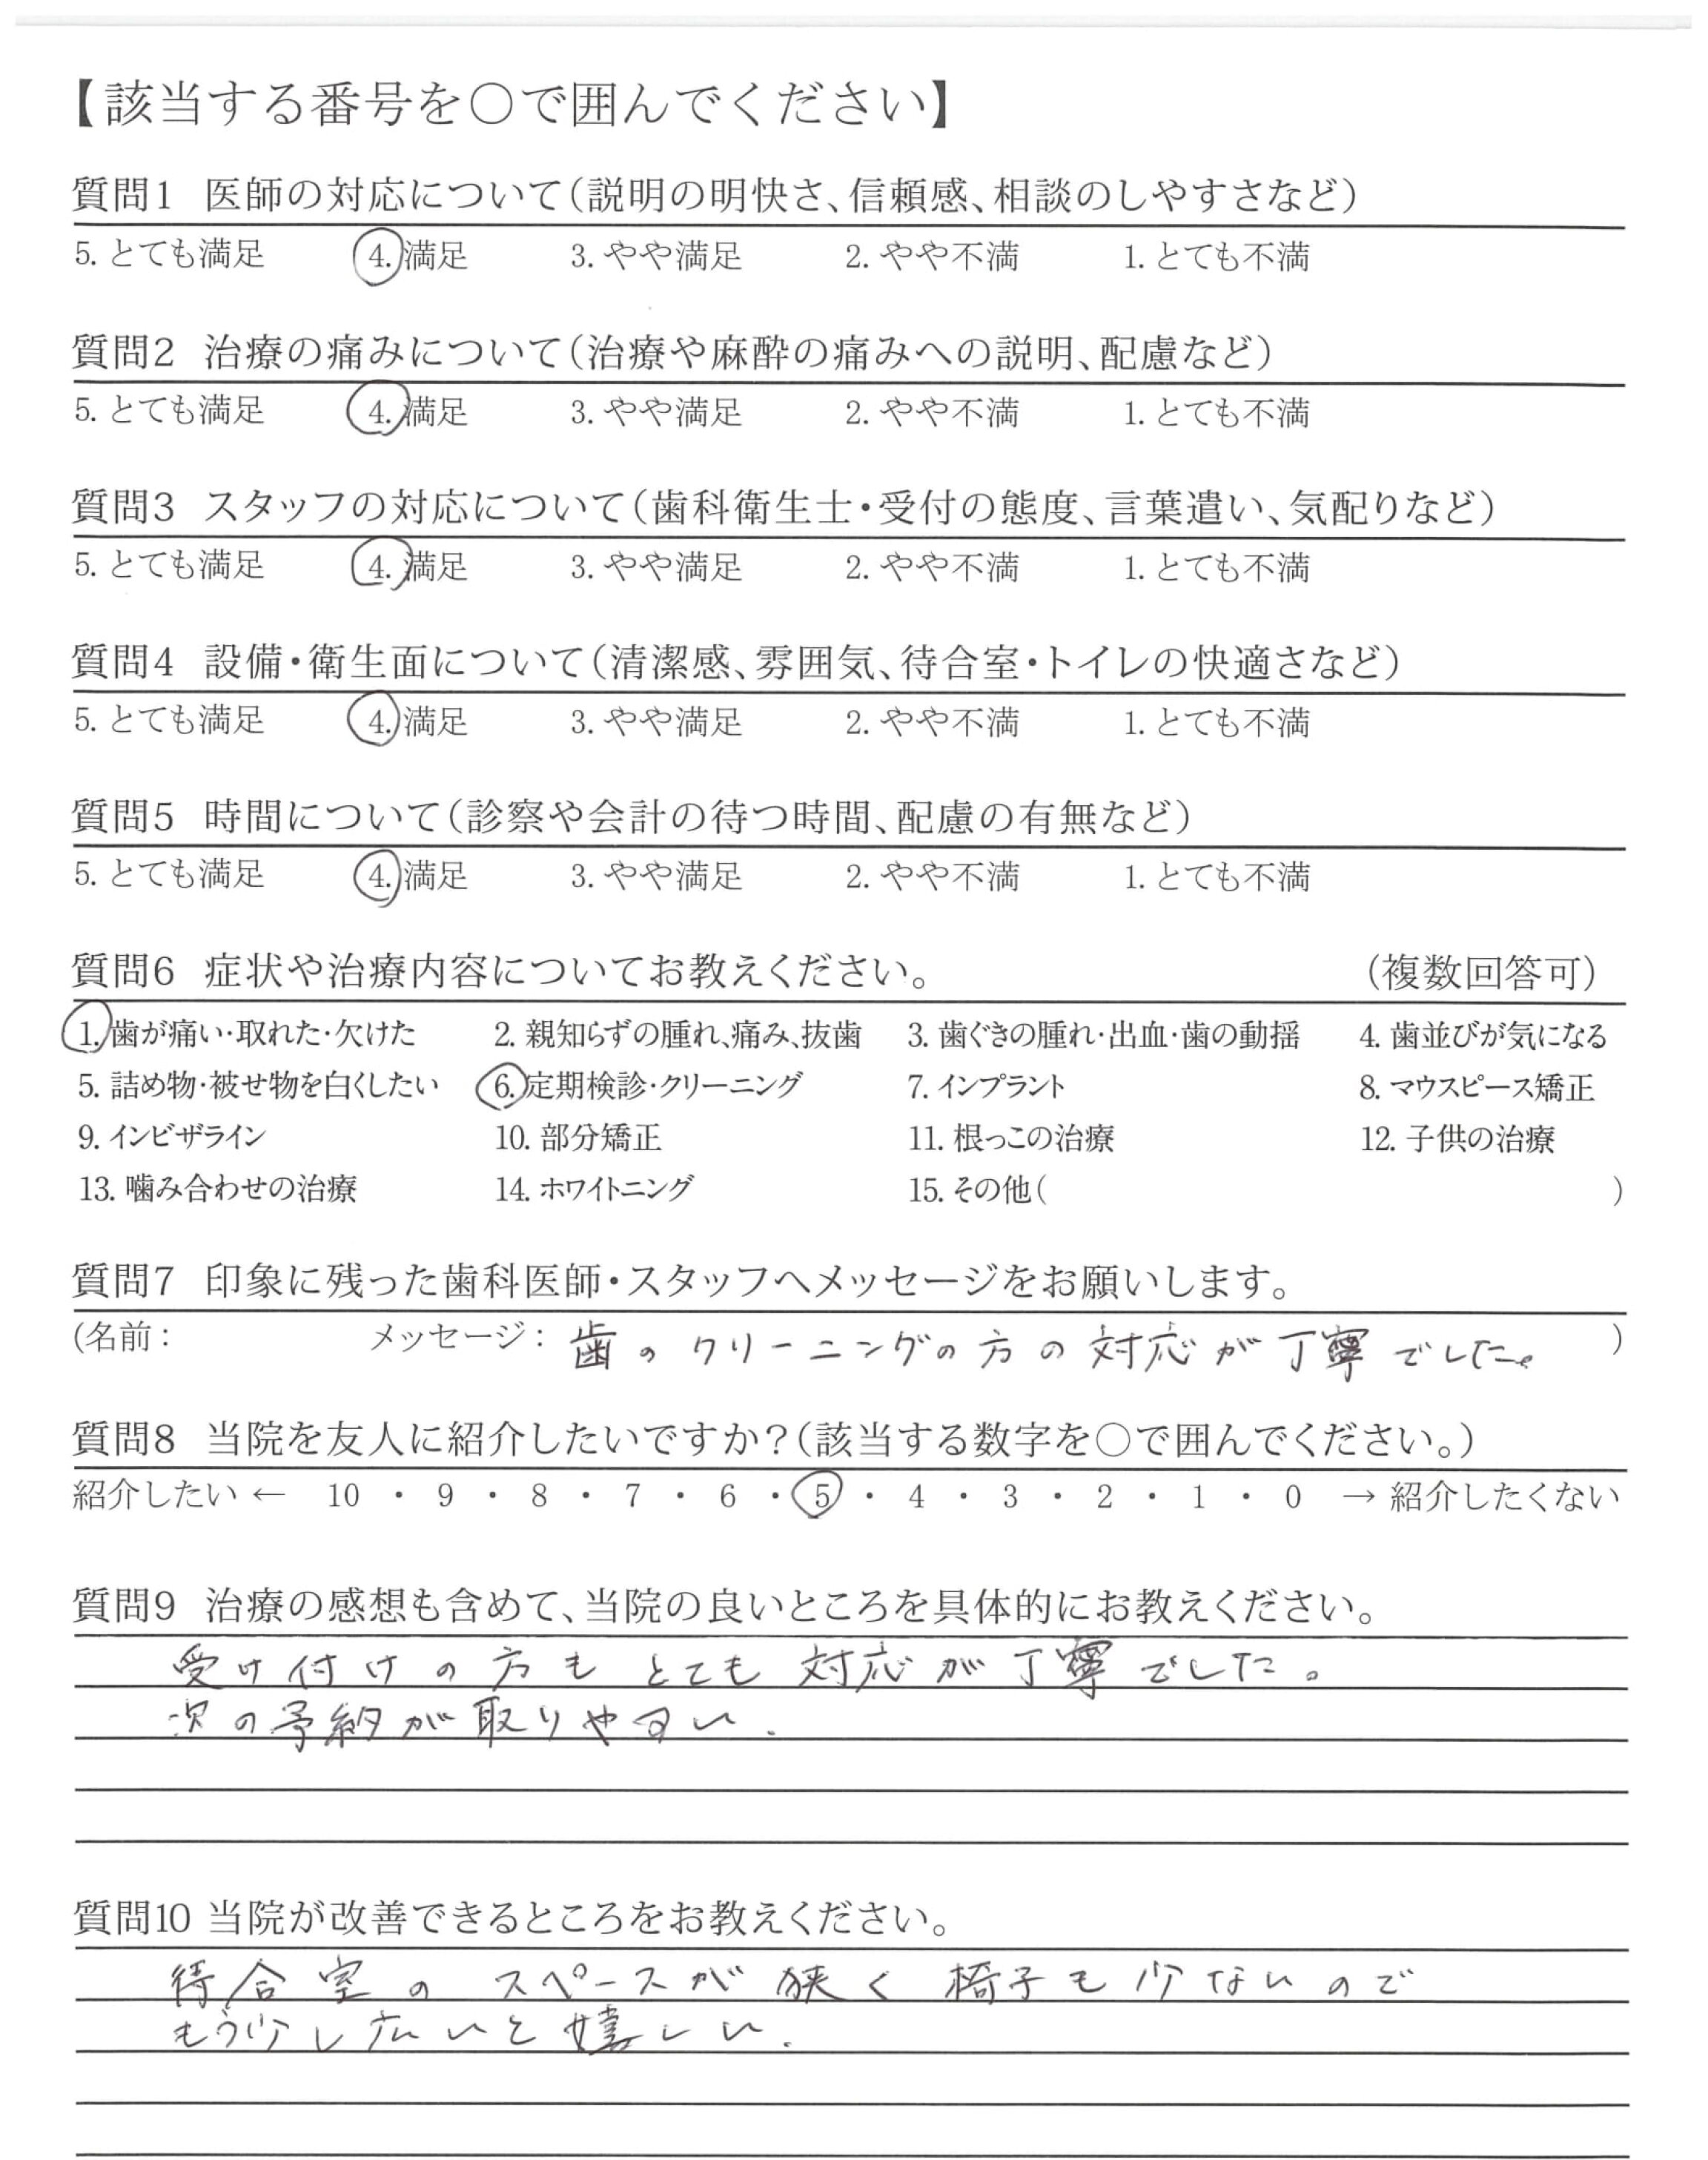 【該当する番号を○で囲んでください】
質問1 医師の対応について(説明の明快さ、信頼感、相談のしやすさなど)
5. とても満足 4. 満足 3. やや満足 2. やや不満 1. とても不満
質問2 治療の痛みについて(治療や麻酔の痛みへの説明、配慮など)
5. とても満足 4. 満足 3. やや満足 2. やや不満 1. とても不満
質問3 スタッフの対応について(歯科衛生士・受付の態度、言葉遣い、気配りなど)
5. とても満足 4. 満足 3. やや満足 2. やや不満 1. とても不満
質問4 設備・衛生面について(清潔感、雰囲気、待合室・トイレの快適さなど)
5. とても満足 4. 満足 3. やや満足 2. やや不満 1. とても不満
質問5 時間について(診察や会計の待つ時間、配慮の有無など)
5. とても満足 4. 満足 3. やや満足 2. やや不満 1. とても不満
質問6 症状や治療内容についてお教えください。 (複数回答可)
1. 歯が痛い・取れた・欠けた 2. 親知らずの腫れ、痛み、抜歯 3. 歯ぐきの腫れ・出血・歯の動揺 4. 歯並びが気になる
5. 詰め物・被せ物を白くしたい 6. 定期検診・クリーニング 7. インプラント 8. マウスピース矯正
9. インビザライン 10. 部分矯正 11. 根っこの治療 12. 子供の治療
13. 噛み合わせの治療 14. ホワイトニング 15. その他( )
質問7 印象に残った歯科医師・スタッフへメッセージをお願いします。
(名前: メッセージ: 歯のクリーニングの方の対応が丁寧でした。 )
質問8 当院を友人に紹介したいですか?(該当する数字を○で囲んでください。)
紹介したい ← 10 ・ 9 ・ 8 ・ 7 ・ 6 ・ 5 ・ 4 ・ 3 ・ 2 ・ 1 ・ 0 → 紹介したくない
質問9 治療の感想も含めて、当院の良いところを具体的にお教えください。
受け付けの方もとても対応が丁寧でした。
次の予約が取りやすい.
質問10 当院が改善できるところをお教えください。
待合室のスペースが狭く椅子も少ないので
もう少し広いと嬉しい.